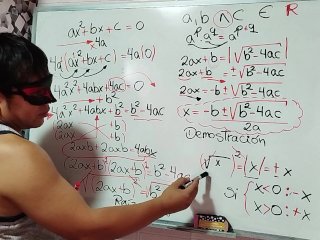 ax²+bx+c = 0
x4a
4a(ax²+bx+c) = 4a(0)
4a²x²+4abx+4ac = 0
+b²
4a²x²+4abx+b² = b²-4ac
(2ax +b)
(2ax +b)
2axb+2axb=4abx
(2ax+b)(2ax+b)=b²-4ac
(2ax+b)²=
a,b ∧ c ∈ R
aᵖa^q = a^(p+q)
2ax+b = |√b²-4ac|
2ax+b = ±√b²-4ac
2ax = -b ±√b²-4ac
x = -b ±√b²-4ac
2a
Demostración
(√x)²=|x|=±x
Si { x<0 : -x
x>0 : +x